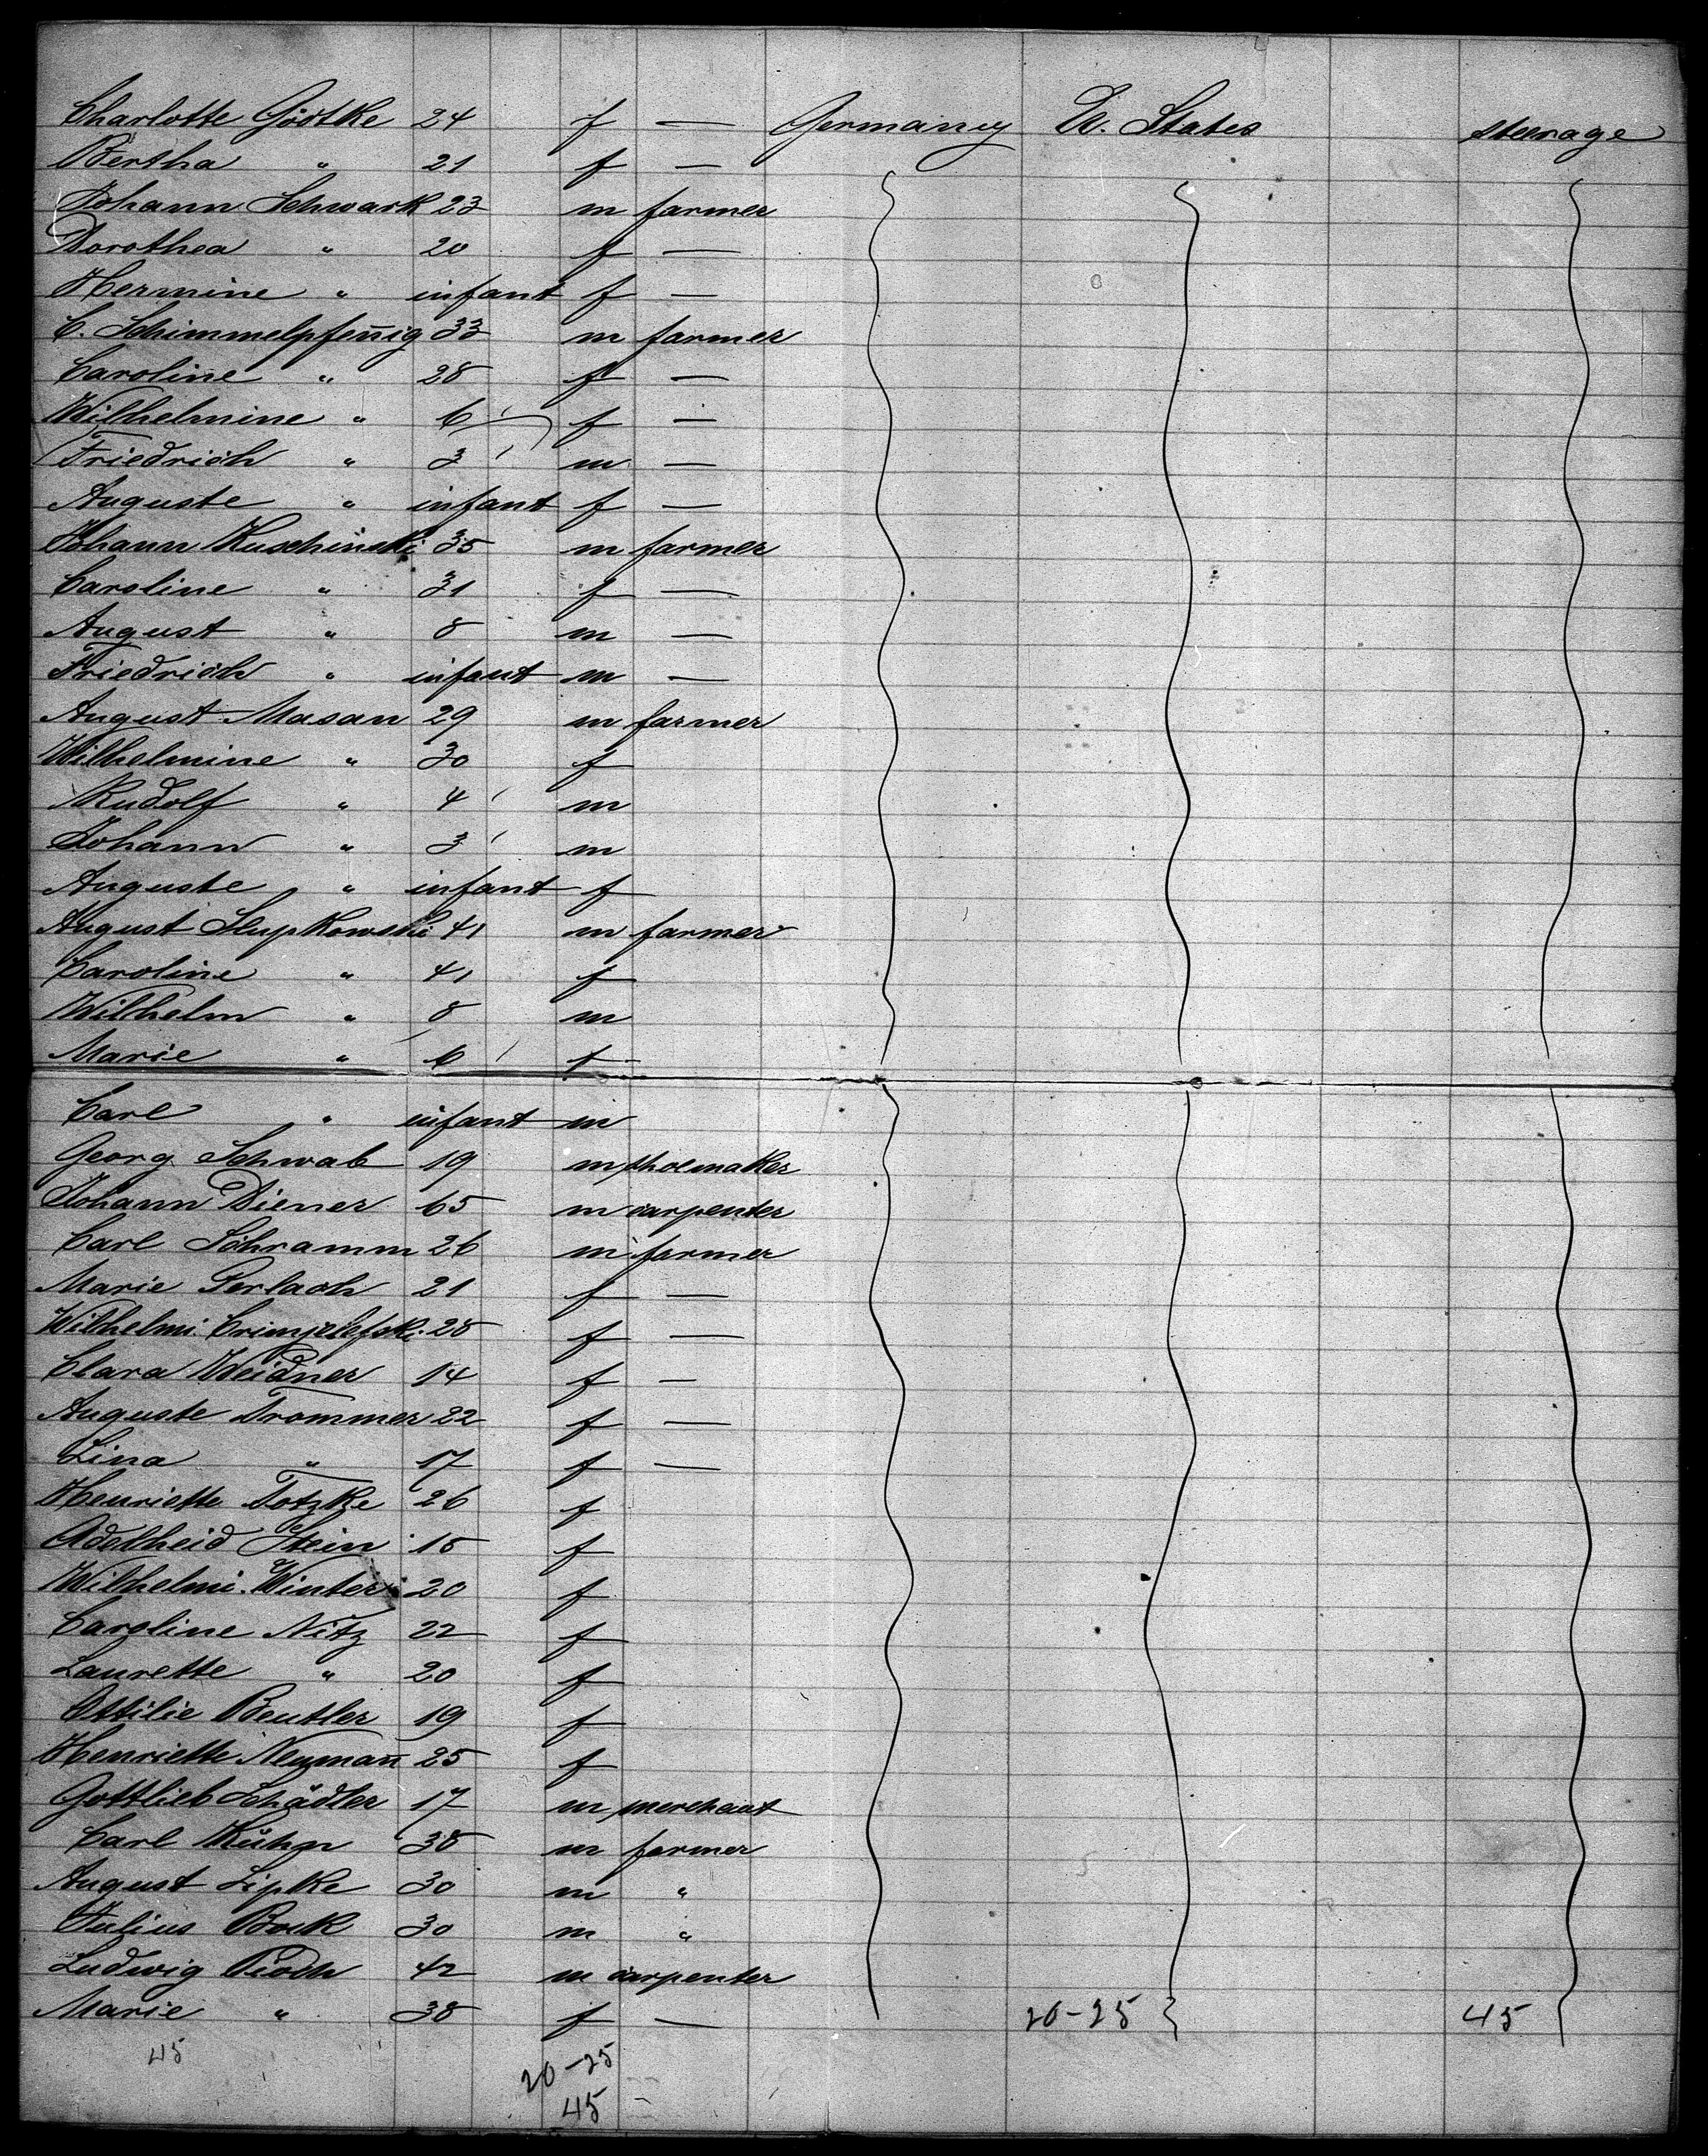 Charlotte Gödtke 24 f — Germany U. States steerage
Bertha " 21 f —
Johann Schwark 23 m farmer
Dorothea " 20 f —
Hermine " infant f —
C. Schimmelpfenīg 33 m farmer
Caroline " 28 f —
Wilhelmine " 6 f —
Friedrich " 3 m —
Auguste " infant f —
Johann Kuschinski 35 m farmer
Caroline " 31 f —
August " 8 m —
Friedrich " infant m —
August Masan 29 m farmer
Wilhelmine " 30 f
Rudolf " 4 m
Johann " 3 m
Auguste " infant f
August Slupkowski 41 m farmer
Caroline " 41 f
Wilhelm " 8 m
Marie " 6 f
Carl " infant m
Georg Schwab 19 m shoemaker
Johann Diener 65 m carpenter
Carl Schramm 26 m farmer
Marie Gerlach 21 f —
Wilhelmi. 28 f —
Clara Weidner 14 f —
Auguste Trommer 22 f —
Lina " 17 f —
Henriette Totzke 26 f
Adelheid Stein f
Wilhelmi. Winter 20 f
Caroline Nitz 22 f
Laurette " 20 f
Ottilie Beutler 19 f
Henriette Neyman̄ 25 f
Gottlieb Schädler 17 m merchant
Carl Kühn 38 m farmer
August Lipke 30 m "
Julius Bock 30 m "
Ludwig 42 m carpenter
Marie " 38 f — 20-25 45
45
20-25
45